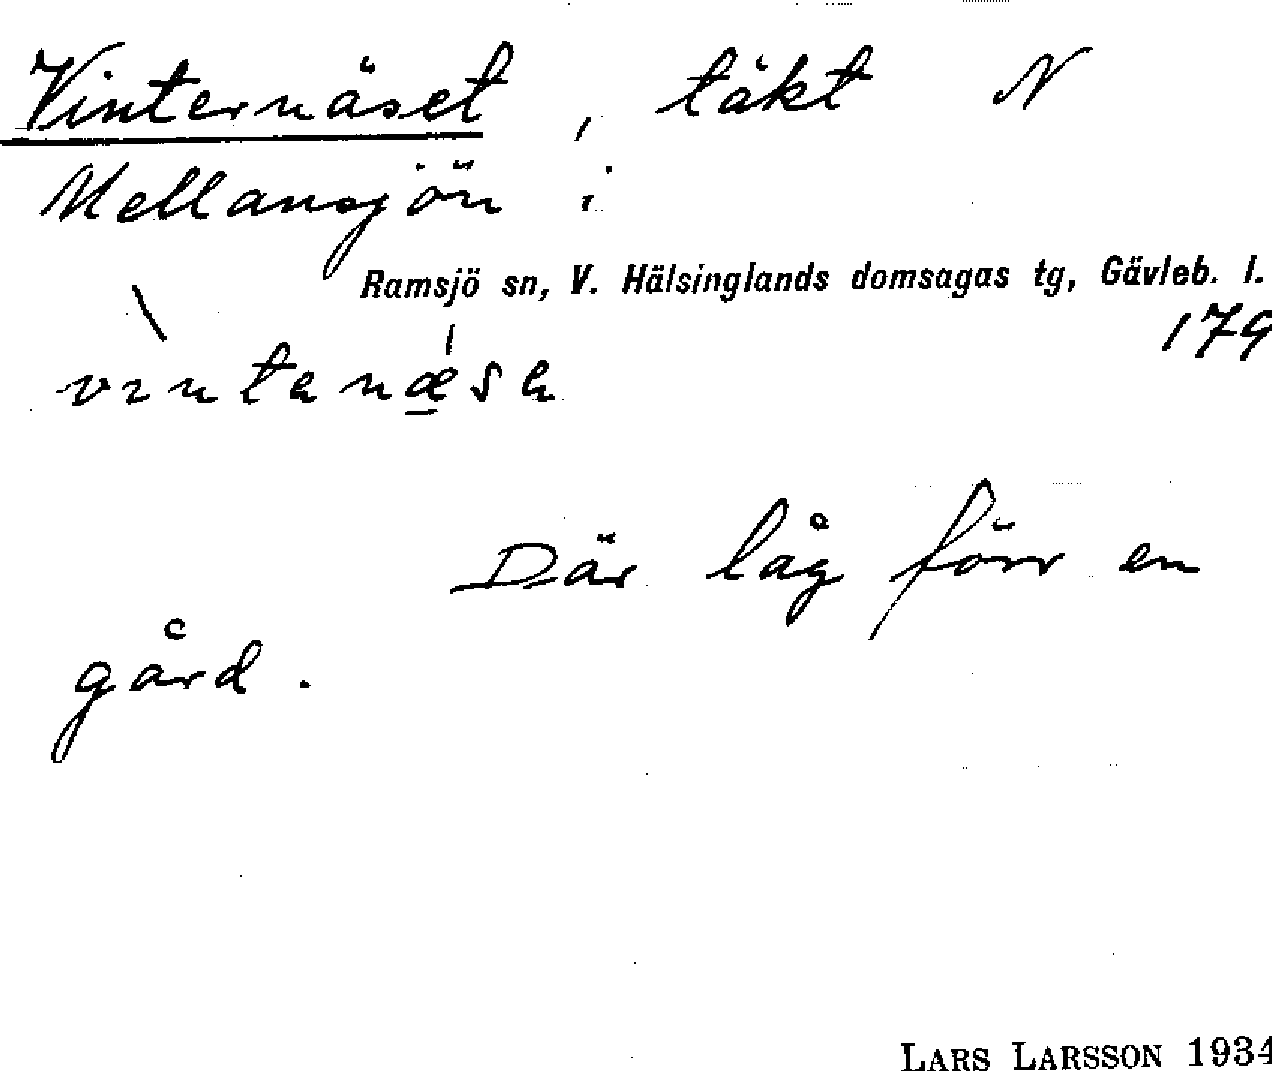 Vinternäset, täkt N
Mellansjön i
Ramsjö sn, V. Hälsinglands domsagas tg, Gävleb. l.
179
Där låg förr en
gård.
LARS LARSSON 1934